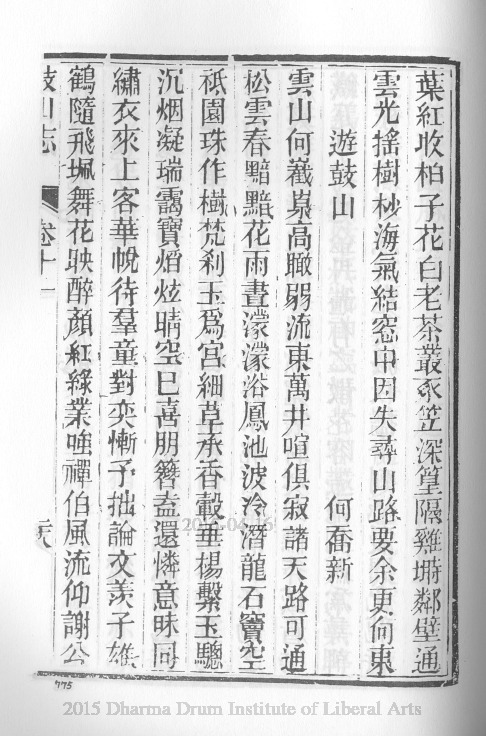 葉紅收柏子花白老茶叢豕笠深篁隔雞塒鄰壁通
雲光搖樹杪海氣結窓中因失尋山路要余更向東
遊鼓山 何喬新
雲山何嶻嶪高瞰弱流東萬井喧俱寂諸天路可通
松雲春黯黯花雨晝濛濛浴鳳池波冷潛龍石竇空
祇園珠作樹梵刹玉爲宮細草承香轂垂楊繫玉驄
沉烟凝瑞靄寶熖炫晴空巳喜朋簪盍還憐意味同
繡衣來上客華帨待羣童對奕慚予拙論文羨子雄
鶴隨飛珮舞花映醉顏紅綠業唾禪伯風流仰謝公
鼓山志 卷十一
775
2015 Dharma Drum Institute of Liberal Arts